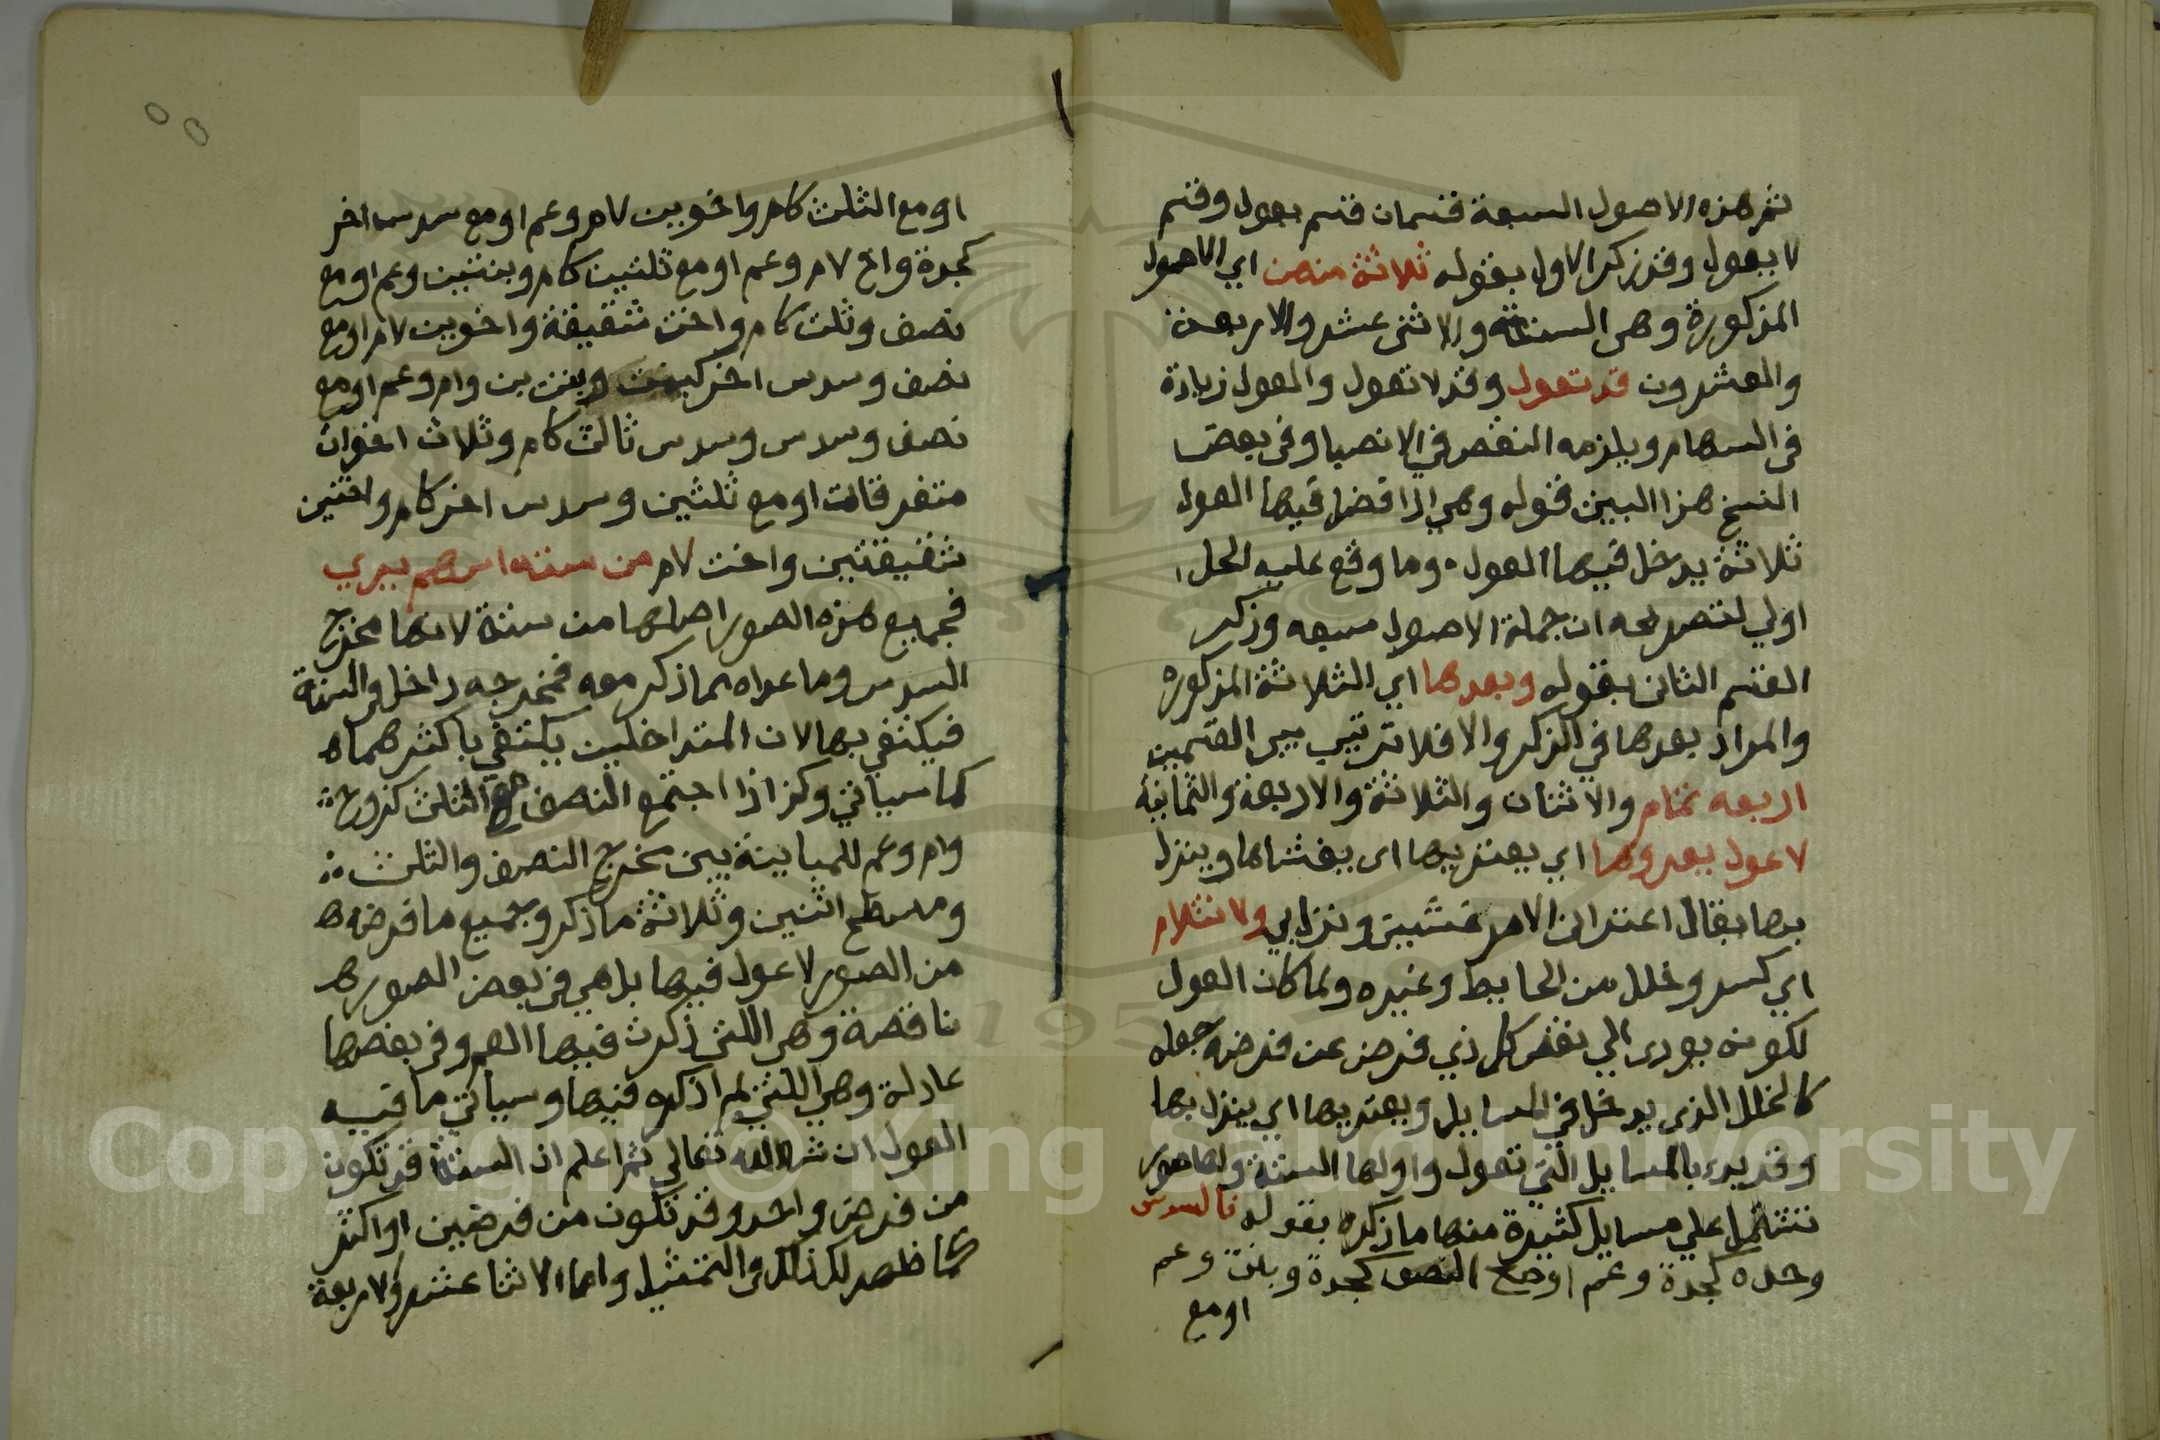 ثم هذه الاصول السبعة قسمان قسم يعول وقسم
لا يعول وقد ذكر الاول بقوله ثلاثة منهن اي الاصول
المذكورة وهي الستة والاثنى عشر والاربعة
والعشرون قد تعول وقد لا تعول والعول زيادة
في السهام ويلزمه النقص في الانصبا وفي بعض
النسخ هذا البيت قوله وهي اذا فصل فيها العول
ثلاثة يدخل فيها العول وما وقع عليه الحل
اولي لتصريحه ان جملة الاصول سبعه وذكر
القسم الثان بقوله وبعدها اي الثلاثة المذكوره
والمراد بعدها في الذكر والا فلا ترتيب بين القسمين
اربعه تمام والاثنان والثلاثة والاربعة والثمانية
لا عول يعروها اي يعتريها اى يغشاها وينزل
بها يقال اعتراني الامر غشيني ونزل بي ولا انثلام
اي كسر وخلل من الحايط وغيره ولما كان العول
لكونه يودى الي نقص كل ذي فرض عن فرضه جعله
كالخلل الذى يدخل في المسايل ويعتريها اي ينزل بها
وقد بدء بالمسايل التي تعول واولها الستة ولها صور
تشتمل علي مسايل كثيرة منها ما ذكره بقوله فالسدس
وحده كجدة وعم او مع النصف كجدة وبنت وعم
او مع
او مع الثلث كام واخوين لام وعم او مع سدس اخر
كجدة واخ لام وعم او مع ثلثين كام وبنتين وعم او مع
نصف وثلث كام واخت شقيقة واخوين لام او مع
نصف وسدس اخر كبنت وبنت بن وام وعم او مع
نصف وسدس وسدس ثالث كام وثلاث اخوات
متفرقات او مع ثلثين وسدس اخر كام واختين
شقيقتين واخت لام من ستة اسهم يجري
فجميع هذه الصور اصلها من ستة لانها مخرج
السدس وما عداه مما ذكر معه فمخرجه داخل في الستة
فيكتفى بها لان المتداخلين يكتفي باكثرهما
كما سياتي وكذا اذا اجتمع النصف مع الثلث كزوج
وام وعم للمباينة بين مخرج النصف والثلث
ومسطح اثنين وثلاثة ما ذكر وجميع ما فرضه
من الصور لا عول فيها بل هي في بعض الصور
ناقصة وهي اللتي ذكرت فيها العم وفي بعضها
عادلة وهي اللتي لم اذكره فيها وسياتي ما فيه
العول ان شا الله تعالي ثم اعلم ان الستة قد تكون
من فرض واحد وقد تكون من فرضين او اكثر
كما ظهر لك ذلك في التمثيل واما الاثنا عشر والاربعة
Copyright © King Saud University
195